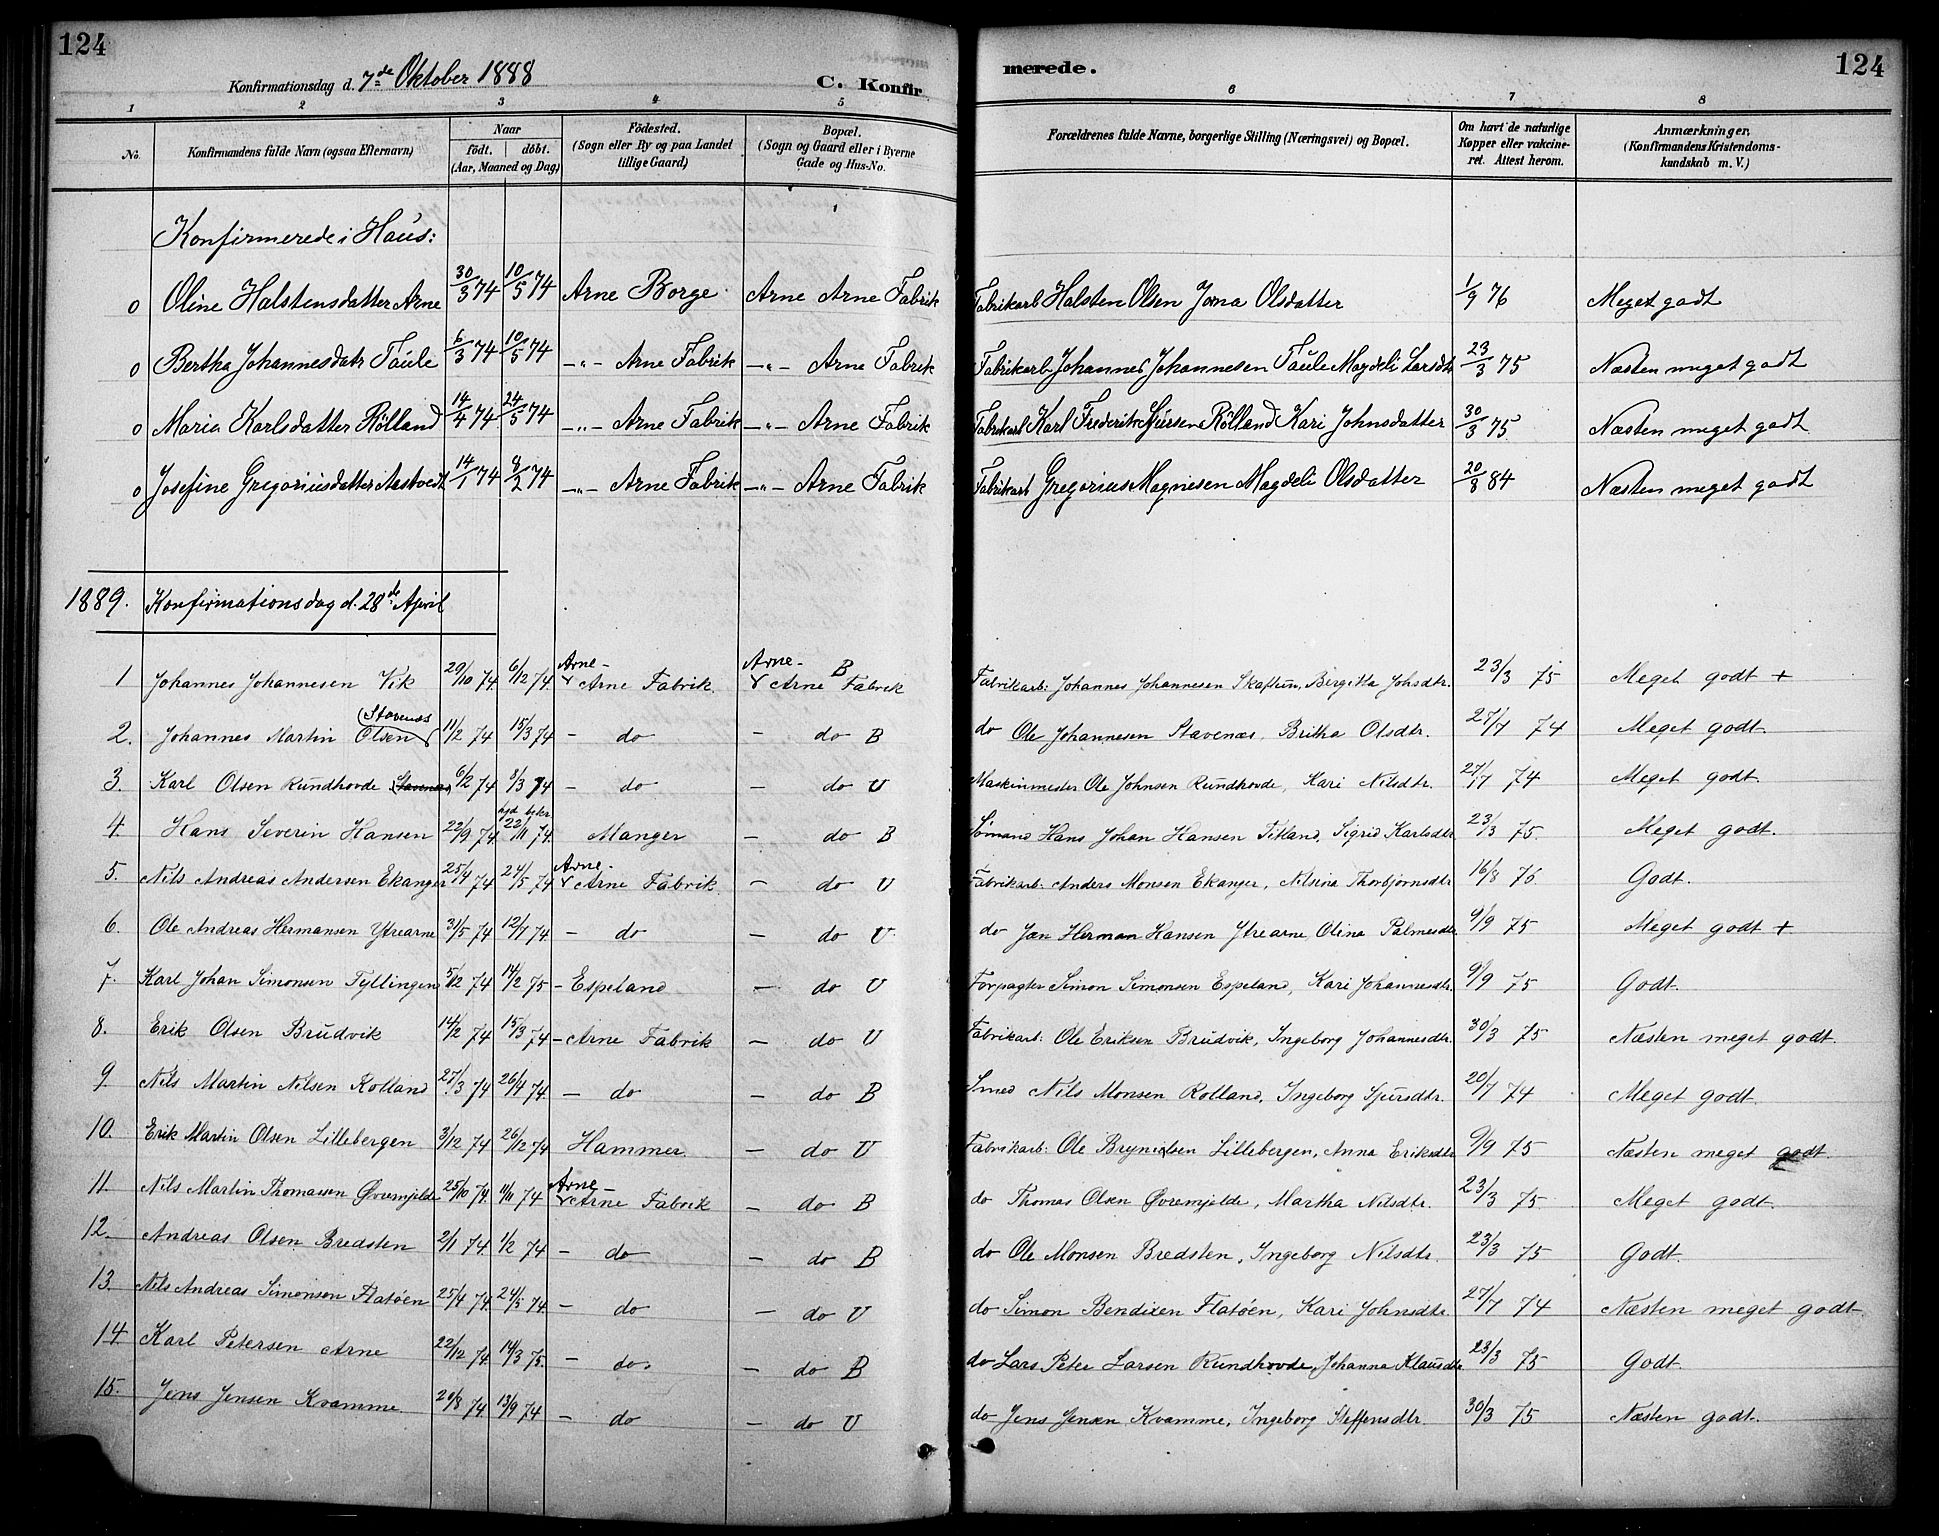 124
Konfirmationsdag d. 7de Oktober 1888
C. Konfirmerede.
124
1 2 3 4 5 6 7 8
No.
Konfirmandens fulde Navn (ogsaa Efternavn)
Naar
födt. döbt.
(Aar, Maaned og Dag)
Födested.
(Sogn eller By og paa Landet
tillige Gaard)
Bopæl.
(Sogn og Gaard eller i Byerne
Gade og Hus-No.
Forældrenes fulde Navne, borgerlige Stilling (Næringsvei) og Bopæl.
Om havt de naturlige
Kopper eller vakcine-
ret. Attest herom.
Anmærkninger,
(Konfirmandens Kristendoms-
kundskab m. V.)
Konfirmerede i Haus:
0 Oline Halstensdatter Arne 30/3 74 10/5 74 Arne Borge Arne Arne Fabrik Fabrikarb Halsten Olsen Jorna Olsdatter 1/9 76 Meget godt
0 Bertha Johannesdatr Taule 6/3 74 10/5 74 -"- Arne Fabrik -"- Arne Fabrik Fabrikarb Johannes Johannesen Taule Magdeli Larsdtr 23/3 75 Næsten meget godt
0 Maria Karlsdatter Rölland 14/4 74 24/5 74 -"- Arne Fabrik -"- Arne Fabrik Fabrikarb Karl Frederik Sjursen Rölland Kari Johnsdatter 30/3 75 Næsten meget godt
0 Josefine Gregoriusdatter Aastvedt 14/1 74 8/2 74 -"- Arne Fabrik -"- Arne Fabrik Fabrikarb Gregorius Magnesen Magdeli Olsdatter 20/8 84 Næsten meget godt
1889. Konfirmationsdag d. 28de April
1 Johannes Johannesen Vik 29/10 74. 6/12 74. Arne- Arne Fabrik. Arne- Arne Fabrik B Fabrikarb: Johannes Johannesen Skaftun, Bergitta Johsdtr. 23/3 75 Meget godt +
2. Johannes Martin Olsen (Stavenæs) 11/2 74 15/3 74 - do - do B do Ole Johannesen Stavenæs, Britha Olsdtr. 27/7 74 Meget godt.
3. Karl Olsen Rundhovde 6/2 74 8/3 74 - do - do U Maskinmester Ole Johnsen Rundhovde, Kari Nilsdtr. 27/7 74 Meget godt.
4. Hans Severin Hansen 22/9 74. 22/11 74. Manger - do B Sömand Hans Johan Hansen Titland, Sigrid Karlsdtr 23/3 75. Meget godt.
5. Nils Andreas Andersen Ekanger 25/4 74 24/5 74 Arne- Arne Fabrik - do U Fabrikarb: Anders Monsen Ekanger, Nilsina Thorbjörnsdtr 16/8 76 Godt.
6. Ole Andreas Hermansen Ytrearne 31/5 74 12/7 74. - do - do U. do Jan Herman Hansen Ytrearne, Olina Palmesdtr. 9/9 75 Meget godt +
7. Karl Johan Simonsen Tyllingen 5/12 74 14/2 75 - Espeland - do U Forpagter Simon Simonsen Espeland, Kari Johannesdtr. 9/9 75 Godt.
8. Erik Olsen Brudvik 14/2 74 15/3 74 - Arne Fabrik - do U Fabrikarb: Ole Eriksen Brudvik, Ingeborg Johannesdtr. 30/3 75 Næsten meget godt.
9 Nils Martin Nilsen Rolland 27/3 74 26/4 74. - do - do B Smed Nils Monsen Rolland, Ingeborg Sjursdtr. 20/7 74 Meget godt.
10. Erik Martin Olsen Lillebergen 3/12 74 26/12 74 Hammer. - do U Fabrikarb: Ole Brynielsen Lillebergen, Anna Eriksdtr 9/9 75 Næsten meget godt.
11. Nils Martin Thomassen Øvremjelde 25/10 74. 11/11 74 Arne- Arne Fabrik - do B do Thomas Olsen Øvremjelde, Martha Nilsdtr. 23/3 75. Meget godt.
12. Andreas Olsen Bredsten 2/1 74. 1/2 74 - do - do B do Ole Monsen Bredsten, Ingeborg Nilsdtr. 23/3 75 Godt.
13. Nils Andreas Simonsen Flatöen 25/4 74. 24/5 74. - do - do U do Simon Bendixen Flatöen, Kari Johnsdtr 27/7 74 Næsten meget godt.
14. Karl Petersen Arne 22/12 74 14/3 75. - do. - do B do Lars Peter Larsen Rundhovde, Johanna Klausdtr 23/3 75 Godt.
15. Jens Jensen Kvamme 20/8 74 13/9 74 - do - do U do Jens Jensen Kvamme, Ingeborg Steffensdtr. 30/3 75 Næsten godt.